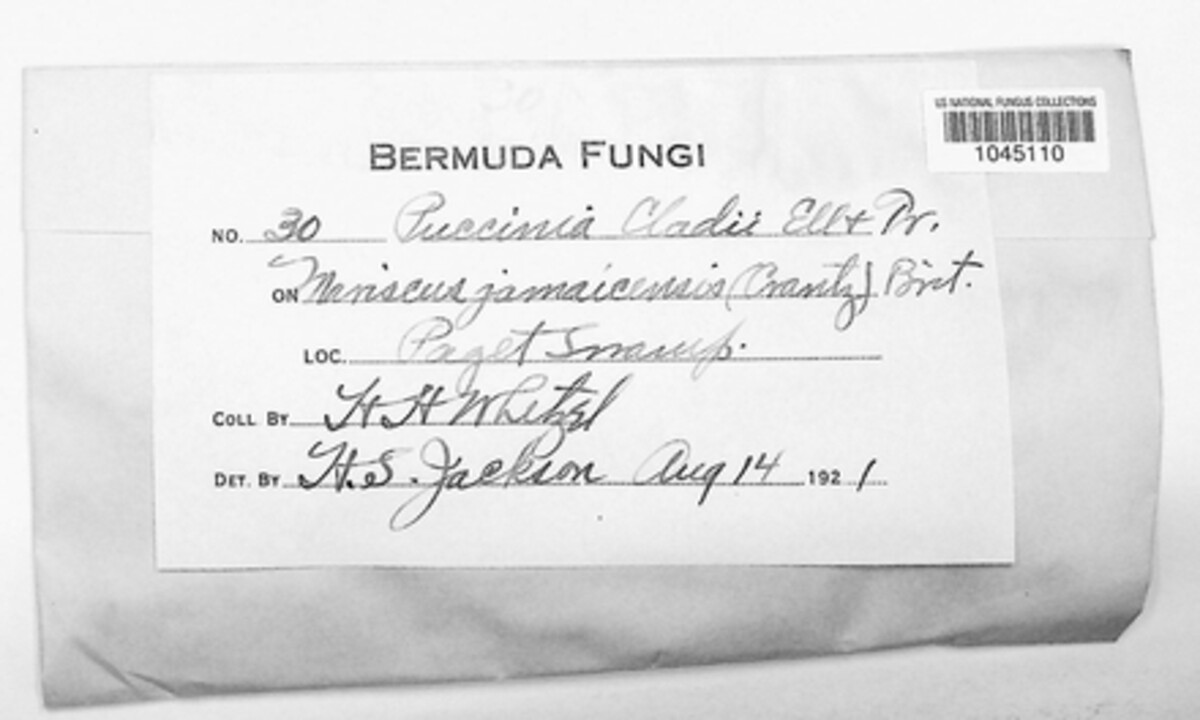 US NATIONAL FUNGUS COLLECTIONS
1045110
BERMUDA FUNGI
NO. 30 Puccinia Cladii Ell & Tr.
ON Mariscus jamaicensis (Crantz) Brit.
LOC. Paget Swamp.
COLL. BY H H Whetzel
DET. BY H. S. Jackson Aug 14 1921